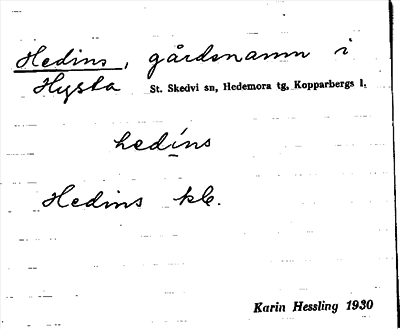 Hedins, gårdsnamn i
Hysta St. Skedvi sn, Hedemora tg, Kopparbergs l.
hedíns
Hedins kb.
Karin Hessling 1930